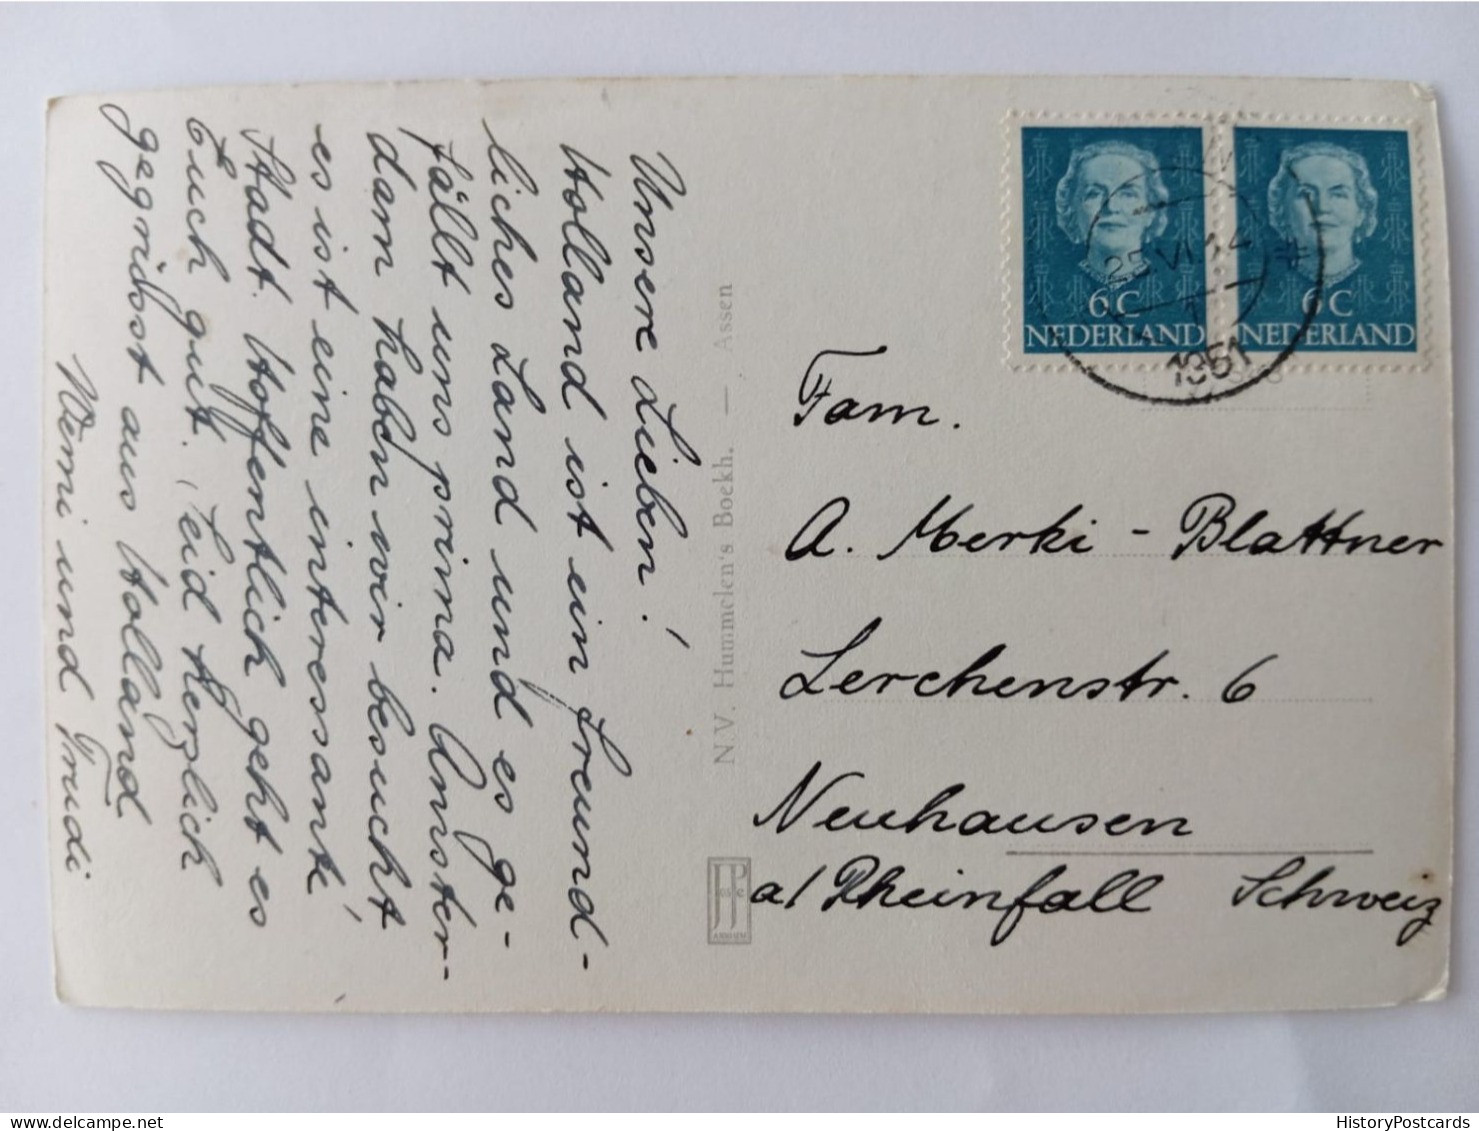 Unsere Lieben!
Holland ist ein freund-
liches Land und es ge-
fällt uns prima. Amster-
dam haben wir besucht
es ist eine interessante
Stadt. Hoffentlich geht es
Euch gut. Seid herzlich
gegrüsst aus Holland
und Trudi
N.V. Hummelen's Boekh. — Assen
6C
NEDERLAND
6C
NEDERLAND
25 VI 14
1951
Fam.
A. Merki - Blattner
Lerchenstr. 6
Neuhausen
a/ Rheinfall Schweiz
HistoryPostcards